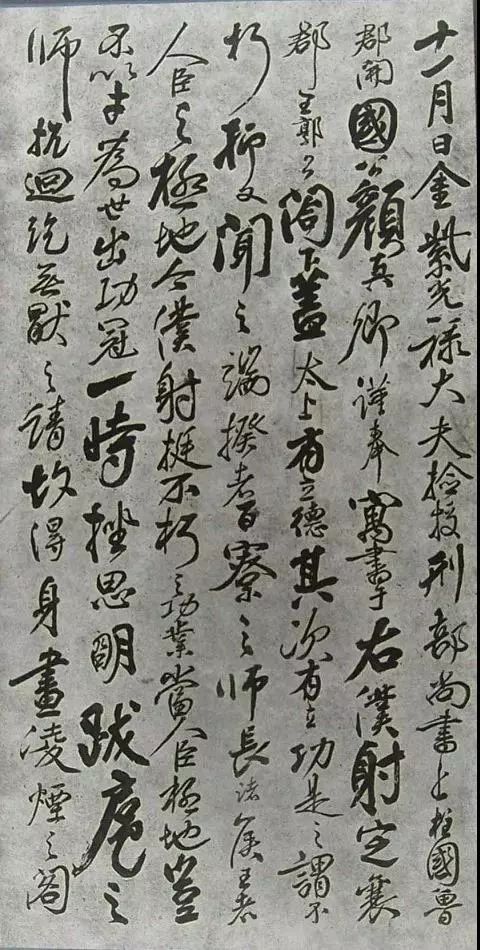 十一月日金紫光祿大夫撿挍刑部尚書上柱國魯
郡開國公顏真卿謹奉寓書于右僕射定襄
郡王郭公閤下蓋太上有立德其次有立功是之謂不
朽抑又聞之端揆者百寮之師長諸侯王者
人臣之極地今僕射挺不朽之功業當人臣極地豈
不以才為世出功冠一時挫思明跋扈之
師抗迴紇無猒之請故得身畫凌煙之閣